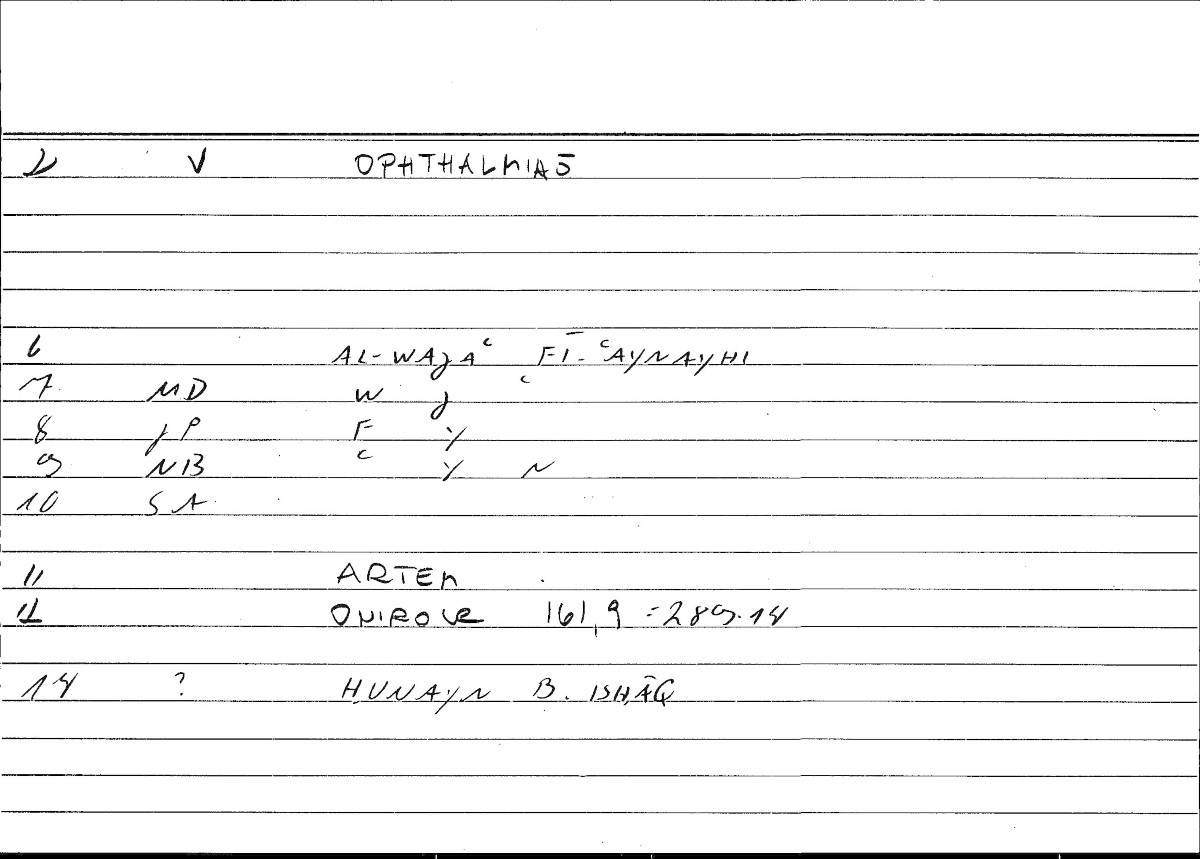 2 V OPHTHALMIAS
6 AL-WAJAʿ FĪ-ʿAYNAYHI
7 MD W J ʿ
8 JP F Y
9 NB ʿ Y N
10 SA
11 ARTEM
12 ONIROCR 161,9 = 289.14
14 ? ḤUNAYN B. ISḤĀQ